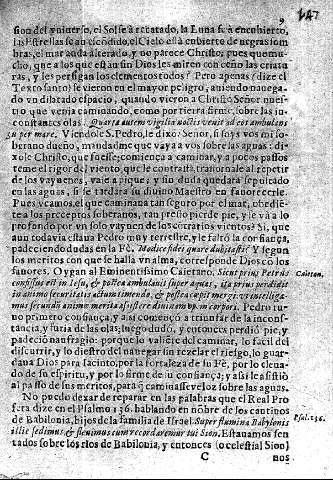 9
sion del vniuerso, el Sol se à recatado, la Luna se à encubierto,
las Estrellas se an escõdido, el Cielo està cubierto de negras som
bras, el mar anda alterado, y no parece Christo; pues que mu-
cho, que a los que estan sin Dios les miren con ceño las criatu
ras, y les persigan los elementos todos? Pero apenas (dize el
Texto santo) se vieron en el mayor peligro, auiendo nauega-
do vn dilatado espacio, quando vieron a Christo Señor nues-
tro que venia caminando, como por tierra firme, sobre las in-
constantes olas. Quarta autem vigilia noctis venit ad eos ambulans
super mare. Viendole S. Pedro, le dixo: Señor, si soys vos mi so-
berano dueño, mandadme que vaya a vos sobre las aguas: di-
xole Christo, que fuesse; comiença a caminar, y a pocos passos
teme el rigor del viento que le contrasta, tiranno al repetir
de los vayuenes, vase a pique; y sin duda quedara sepultado
en las aguas, si se tardara su diuino Maestro en fauorecerle.
Pues veamos, el que caminaua tan seguro por el mar, obedie-
te a los preceptos soberanos, tan presto pierde pie, y le và a lo
profundo por vn solo vayuen de los contrarios vientos? Si, que
aun todavia estaua Pedro muy terrestre, y le faltò la confiança,
padeciendo dudas en la Fè. Modicæ fidei quare dubitasti? Y segun
los meritos con que se halla vn alma, corresponde Dios cõ los
fauores. Oygan al Eminentissimo Caietano. Sicut prius Petrus
Caietan.
confisus est in Iesu, & postea ambulauit super aquas, ita prius perdidit
in animo securitatis
& postea cœpit mergi: vt intelliga-
mus secundum animi merita assistere diuinam opem corpori. Pedro tu-
uo primero confiança, y assi començò a triunfar de la incons-
tancia, y furia de las olas; luego dudò, y entonces perdiò pie, y
padeciò naufragio: porque lo valiẽte del caminar, lo facil del
discurrir, y lo diestro del nauegar sin rezelar el riesgo, lo guar-
daua Dios para Jacinto, por la fortaleza de su Fè, por lo eleua-
do de su espiritu, y por lo firme de su confiança; y assi le assistiò
al passo de sus meritos, para q̃ caminasse veloz sobre las aguas.
No puedo dexar de reparar en las palabras que el Real Pro
feta dize en el Psalmo 136. hablando en nõbre de los cautiuos
Psal. 136.
de Babilonia, hijos de la familia de Israel. Super flumina Babylonis
illic sedimus, & fleuimus cum recordaremur tui Sion. Estauamos sen
tados sobre los rios de Babilonia, y entonces (o celestial Sion)
C
nos